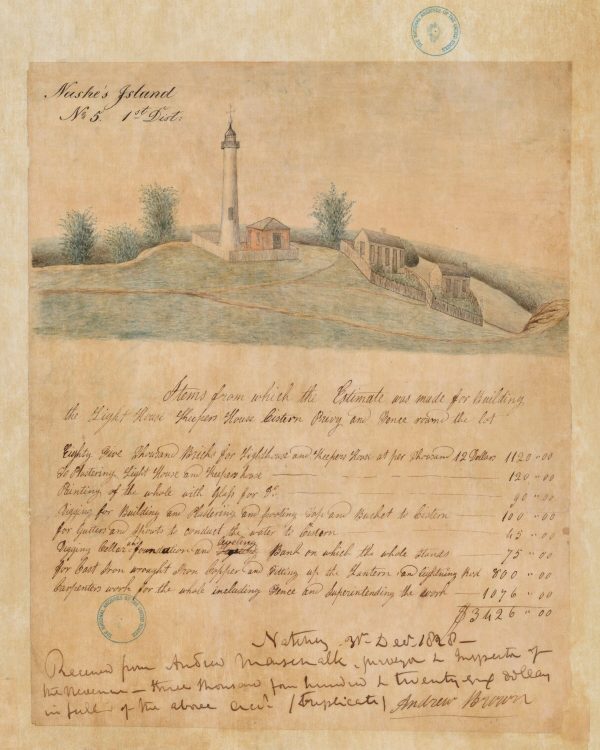 THE NATIONAL ARCHIVES OF THE UNITED STATES
Nashe's Island
No 5. 1st Dist:
Items from which the Estimate was made for Building
the Light House Keepers House Cistern Privy and Fence round the lot
Eighty Five Thousand Bricks for Lighthouse and Keepers House at per Thousand 12 Dollars 1120 " 00
To Plastering Light House and Keepers house 120 " 00
Painting of the whole with Glass for Do. 90 " 00
Digging for Building and Plastering and Top and Bucket to Cistern 100 " 00
for Gutters and Spouts to conduct the water to Cistern 45 " 00
Digging Cellar and foundation and Leveling Bank on which the whole stands 75 " 00
for Cast Iron wrought Iron Copper and Fitting up the Lantern and Lightning Rod 800 " 00
Carpenters work for the whole including Fence and superintending the work 1076 " 00
$3426 " 00
THE NATIONAL ARCHIVES OF THE UNITED STATES
Natchez Decr. 1828
Received from Andrew Marschalk, Surveyor & Inspector of
the Revenue – three thousand four hundred & twenty six dollars
in full of the above acct. (Duplicate) Andrew Brown